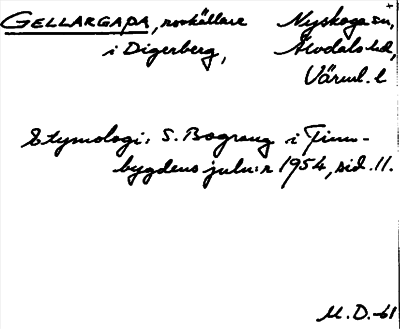 GELLARGAPA, rovkällare Nyskoga sn,
i Digerberg, Älvdals hd,
Värml. l
Etymologi: S. Bograng i Finn-
bygdens julnr 1954, sid. 11.
M.D.-61